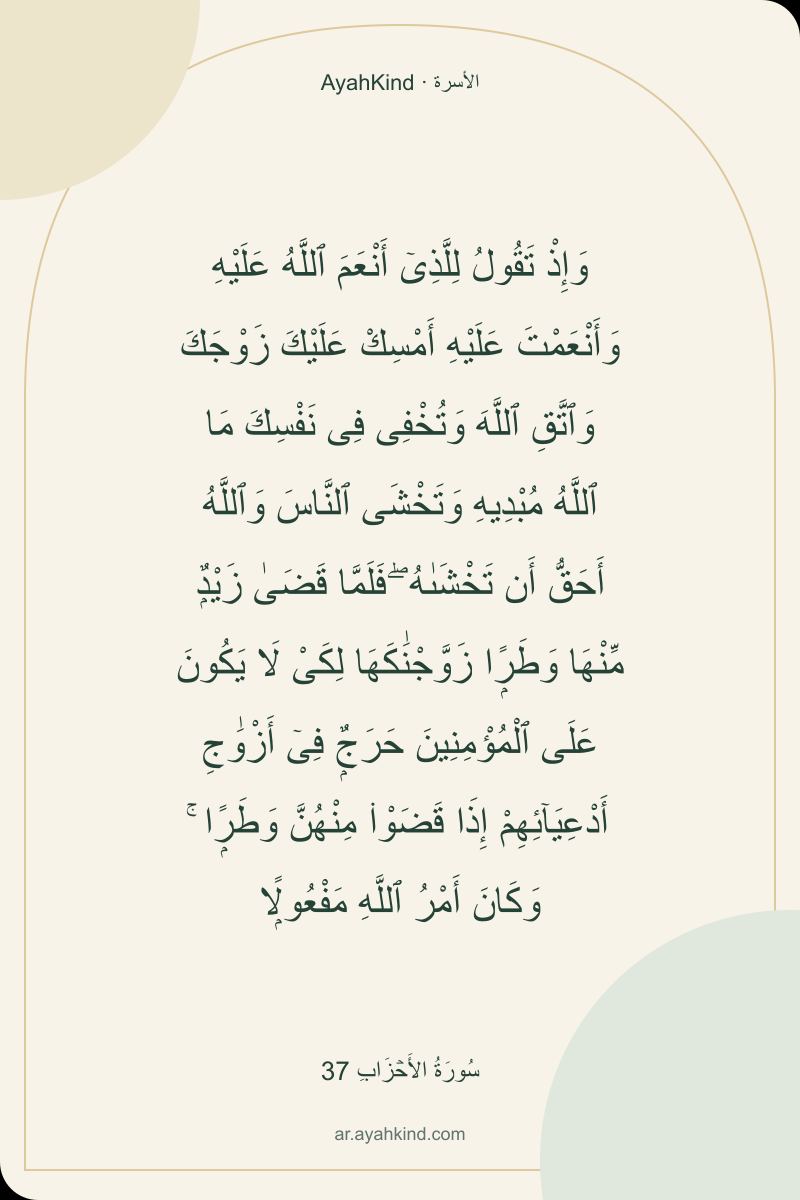 AyahKind · الأسرة
وَإِذْ تَقُولُ لِلَّذِىٓ أَنْعَمَ ٱللَّهُ عَلَيْهِ
وَأَنْعَمْتَ عَلَيْهِ أَمْسِكْ عَلَيْكَ زَوْجَكَ
وَٱتَّقِ ٱللَّهَ وَتُخْفِى فِى نَفْسِكَ مَا
ٱللَّهُ مُبْدِيهِ وَتَخْشَى ٱلنَّاسَ وَٱللَّهُ
أَحَقُّ أَن تَخْشَىٰهُ ۖ فَلَمَّا قَضَىٰ زَيْدٌۭ
مِّنْهَا وَطَرًۭا زَوَّجْنَٰكَهَا لِكَىْ لَا يَكُونَ
عَلَى ٱلْمُؤْمِنِينَ حَرَجٌۭ فِىٓ أَزْوَٰجِ
أَدْعِيَآئِهِمْ إِذَا قَضَوْا۟ مِنْهُنَّ وَطَرًۭا ۚ
وَكَانَ أَمْرُ ٱللَّهِ مَفْعُولًۭا
سُورَةُ الأَحۡزَابِ 37
ar.ayahkind.com